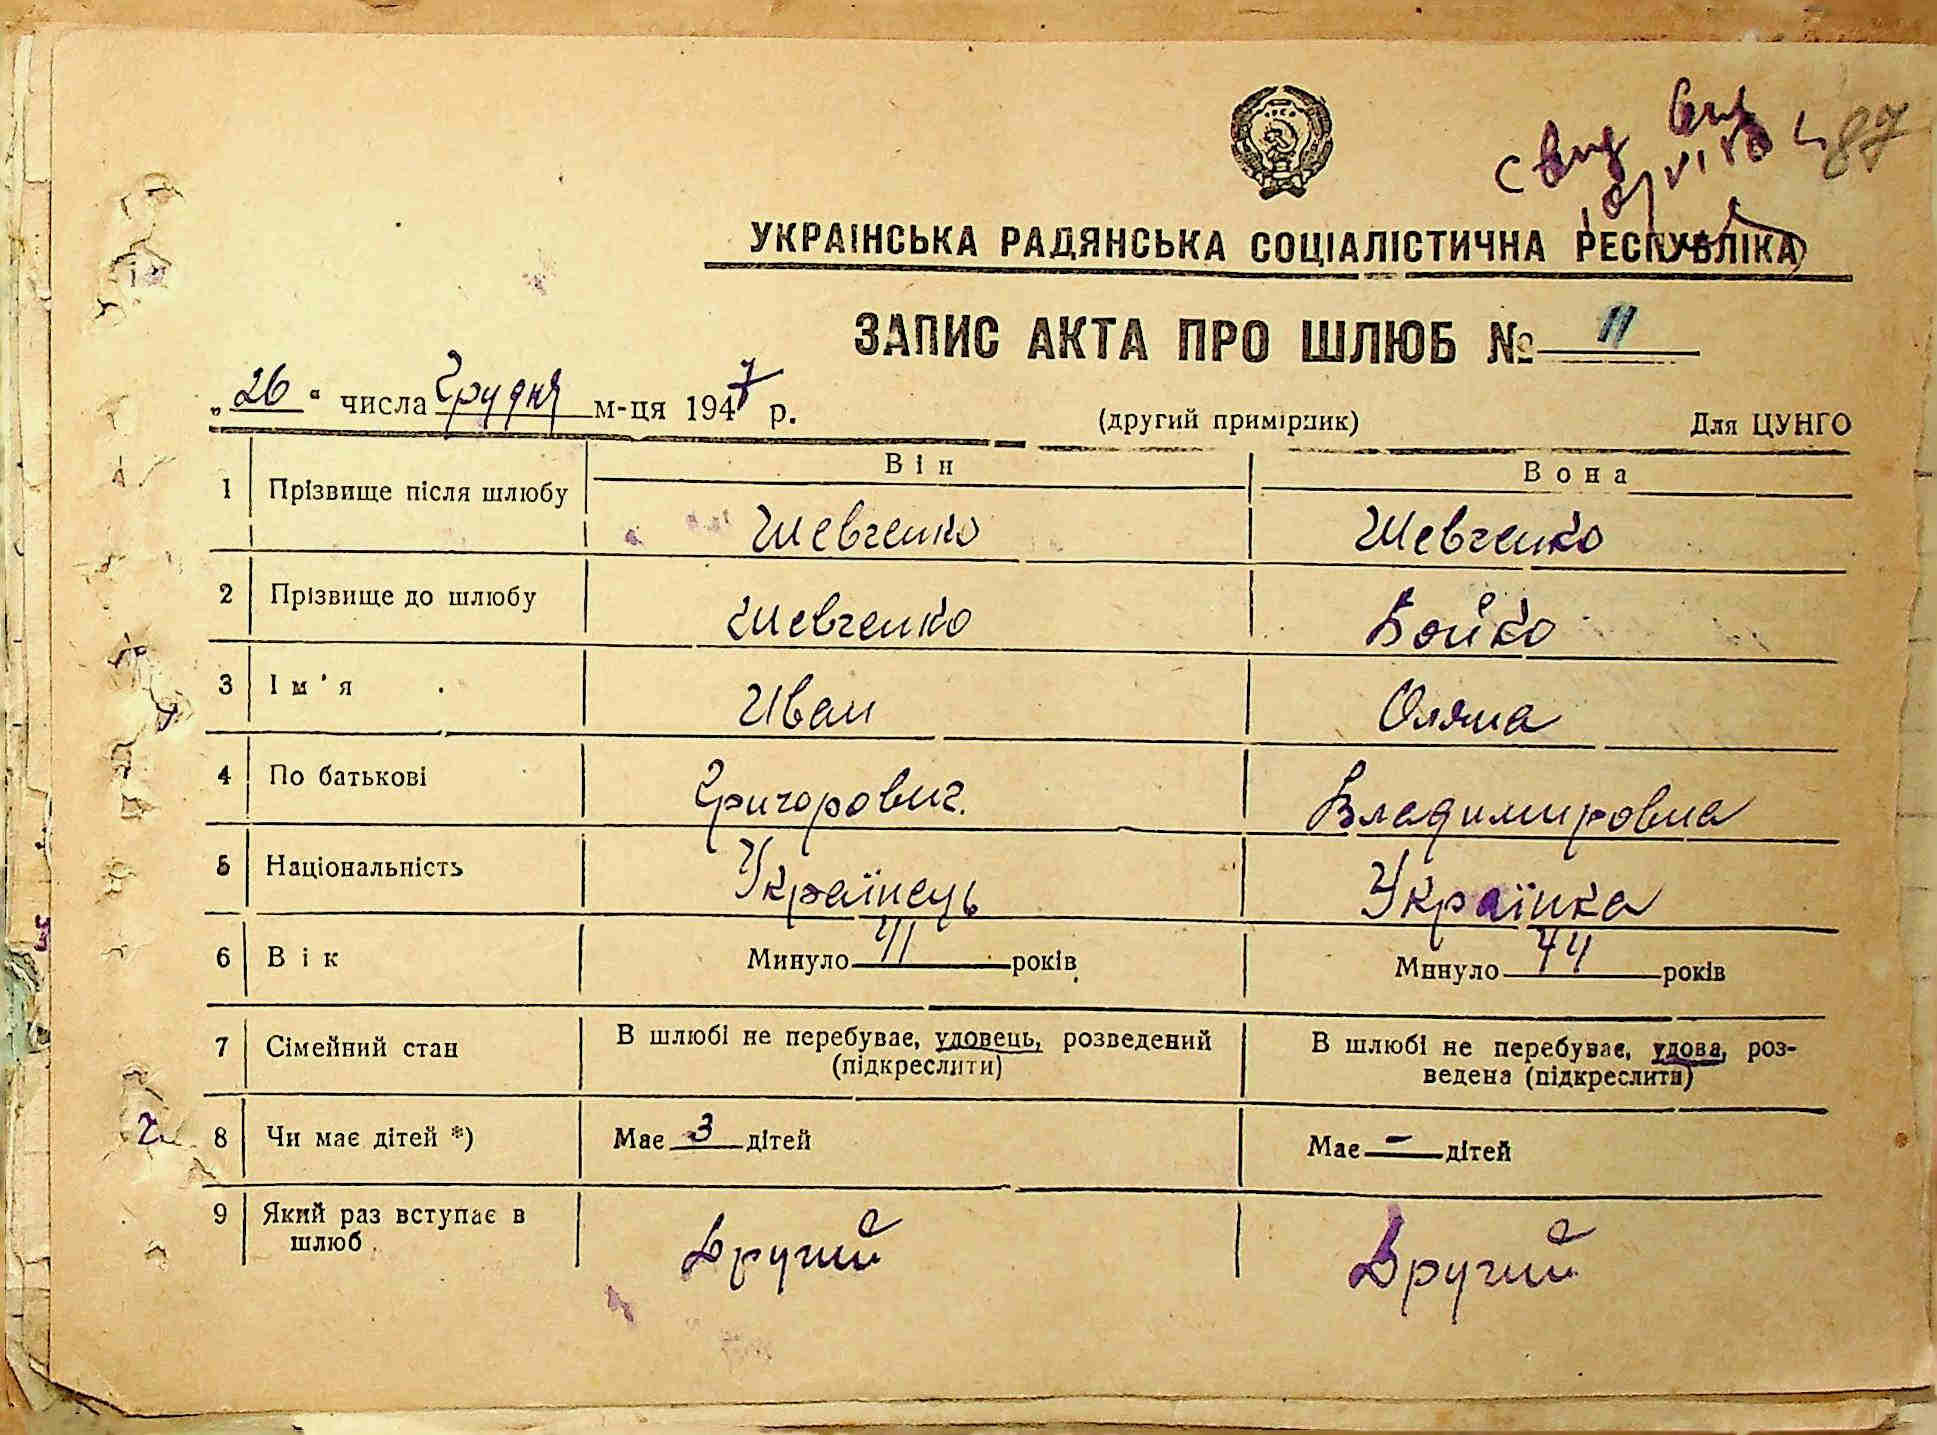 87
УКРАЇНСЬКА РАДЯНСЬКА СОЦІАЛІСТИЧНА РЕСПУБЛІКА
ЗАПИС АКТА ПРО ШЛЮБ № 11
„26“ числа Грудня м-ця 1947 р.
(другий примірник) Для ЦУНГО
Він Вона
1 Прізвище після шлюбу Шевченко Шевченко
2 Прізвище до шлюбу Шевченко Бойко
3 Ім'я Иван Оляна
4 По батькові Григорович. Владимировна
5 Національність Українець Українка
6 Вік Минуло 41 років Минуло 44 років
7 Сімейний стан В шлюбі не перебуває, удовець, розведений (підкреслити) В шлюбі не перебуває, удова, роз-
ведена (підкреслити)
8 Чи має дітей *) Має 3 дітей Має – дітей
9 Який раз вступає в шлюб Другий Другий